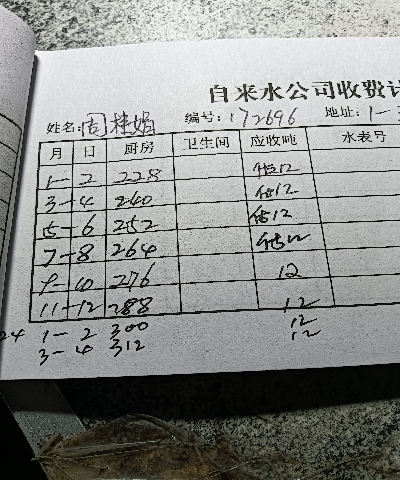 自来水公司收费计
姓名:周桂娟 编号:172696 地址:1-
月 日 厨房 卫生间 应收吨 水表号
1-2 228 估12
3-4 240 估12
5-6 252 估12
7-8 264 估12
9-10 276 12
11-12 288 12
24 1-2 300 12
3-4 312 12